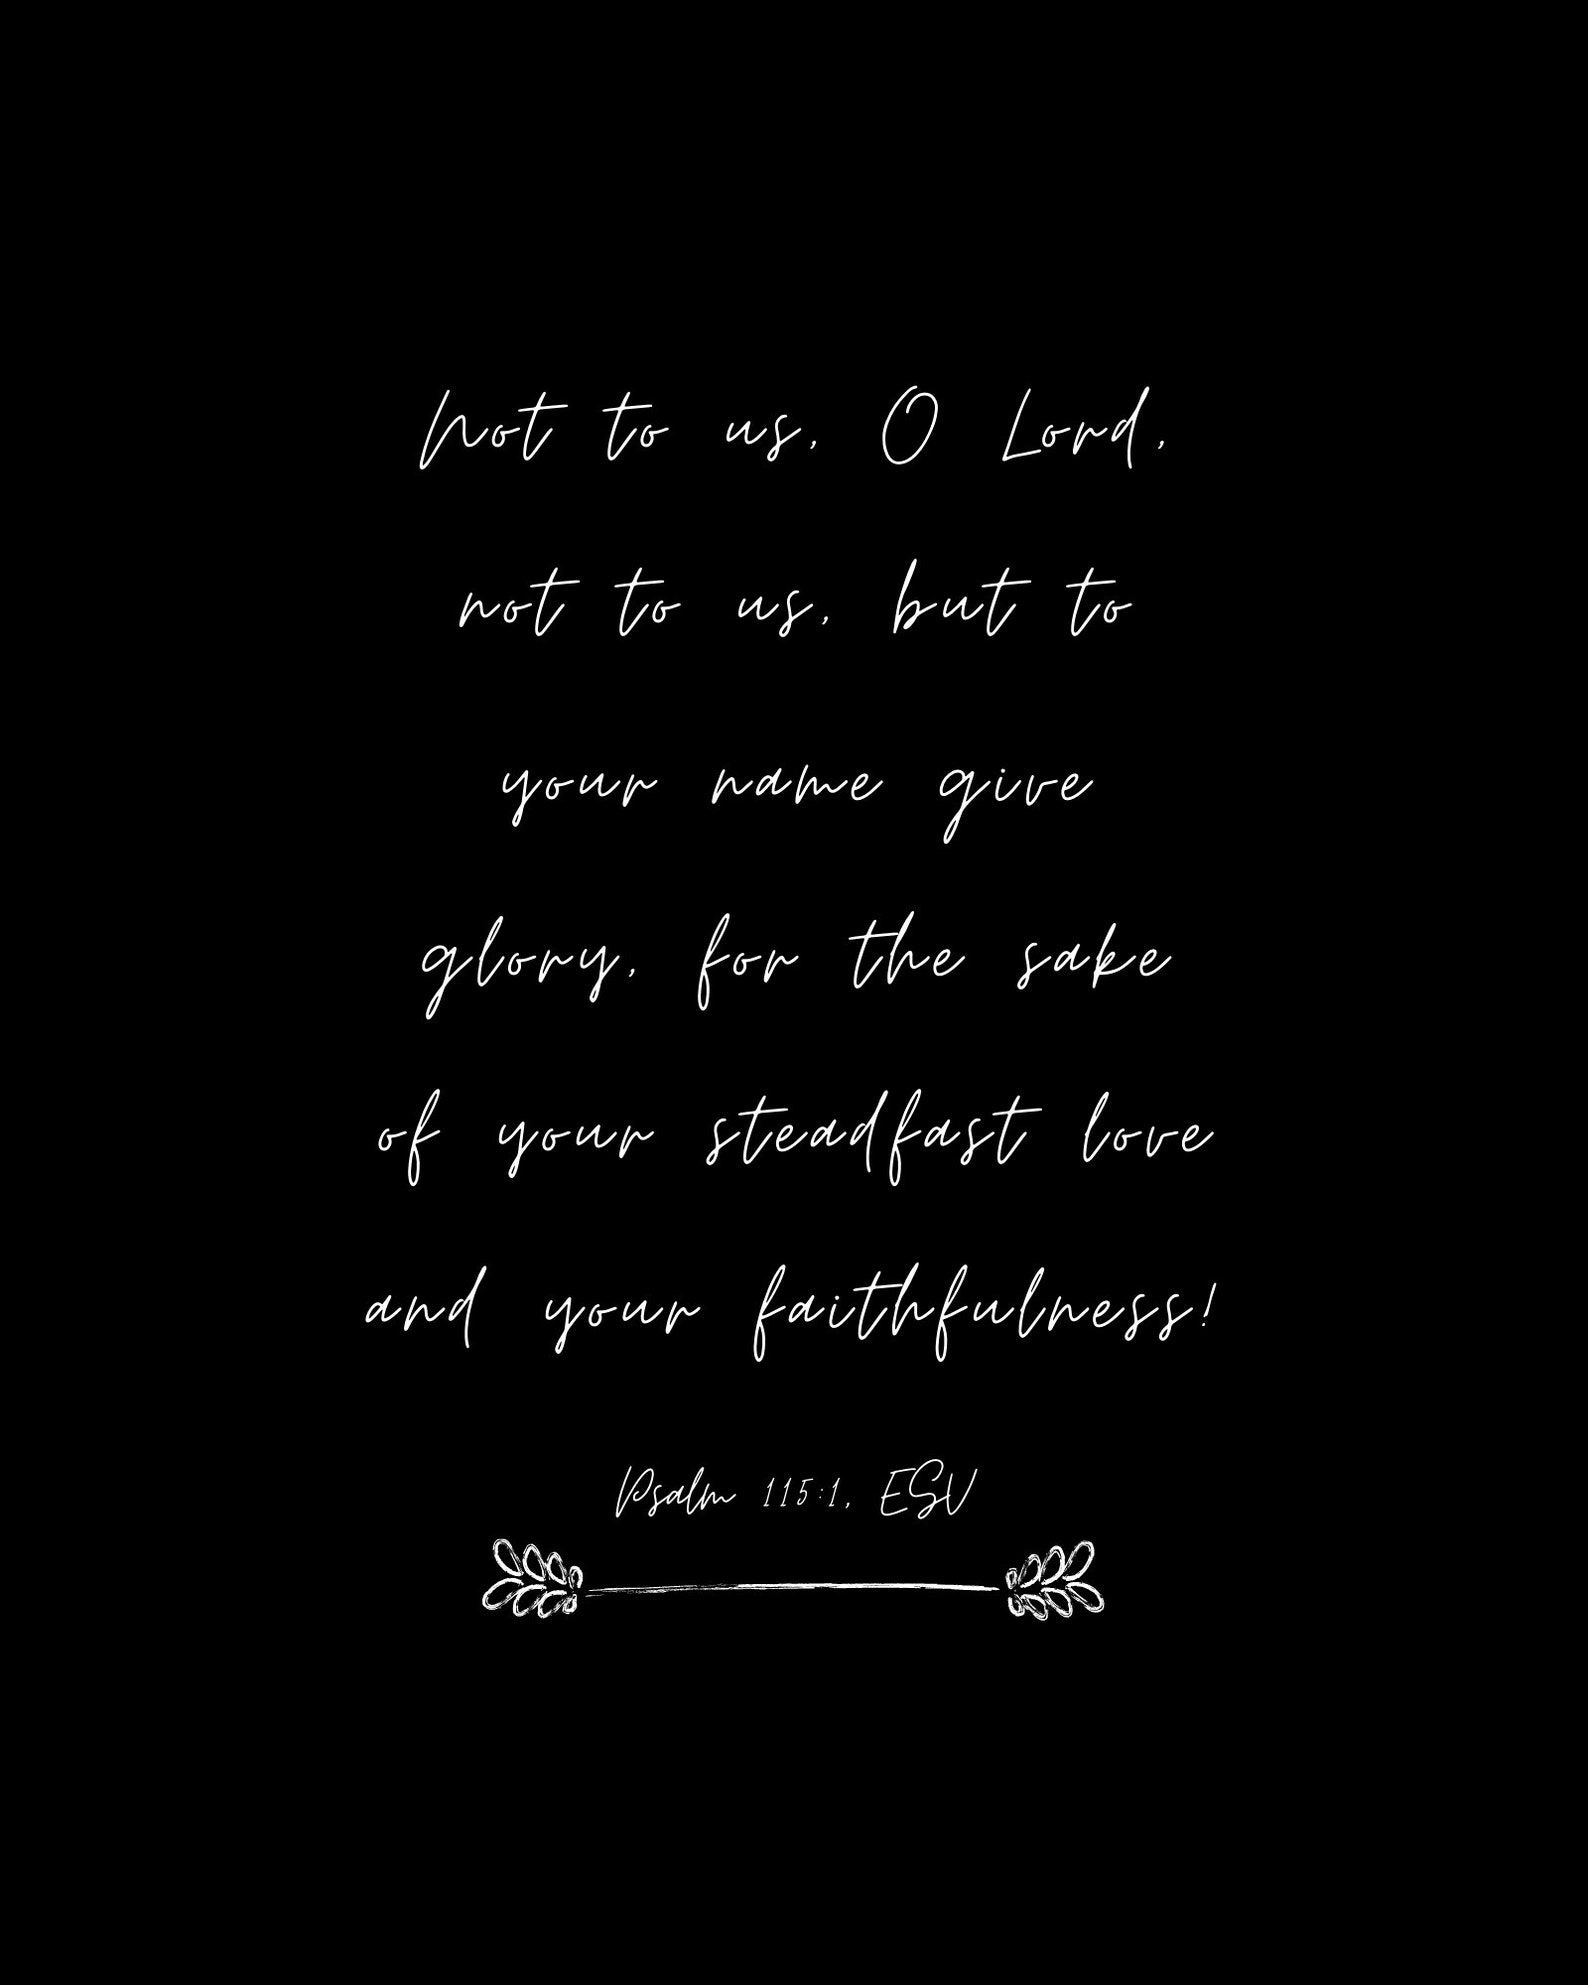 Not to us, O Lord,
not to us, but to
your name give
glory, for the sake
of your steadfast love
and your faithfulness!
Psalm 115:1, ESV